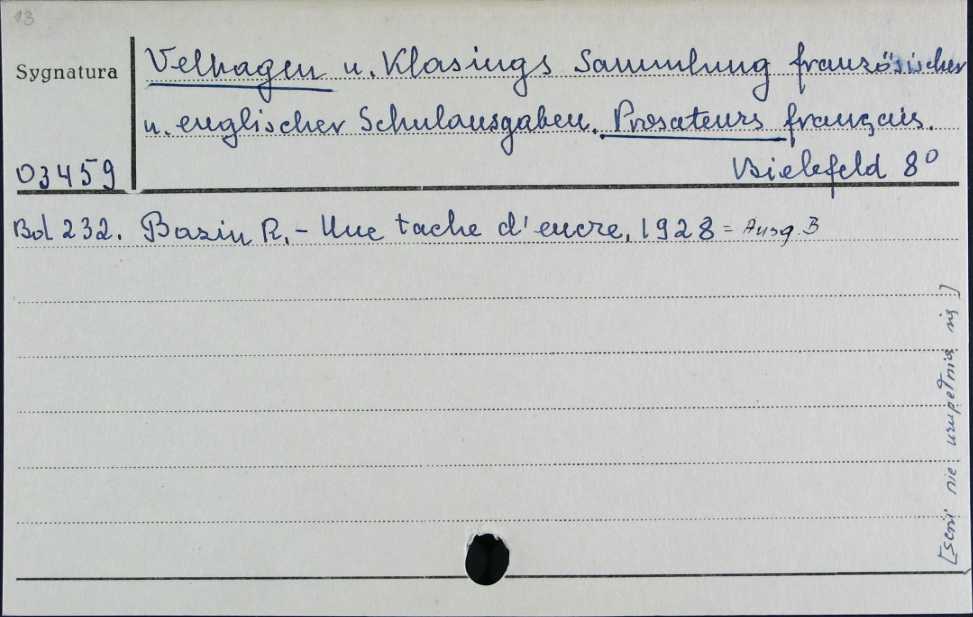 13
Sygnatura
Velhagen u. Klasings Sammlung französischer
u. englischer Schulausgaben. Prosateurs français.
03459
Bielefeld 8°
Bd 232. Bazin R. - Une tache d'encre, 1928 = Ausg. B
[serii nie uzupełnia się]